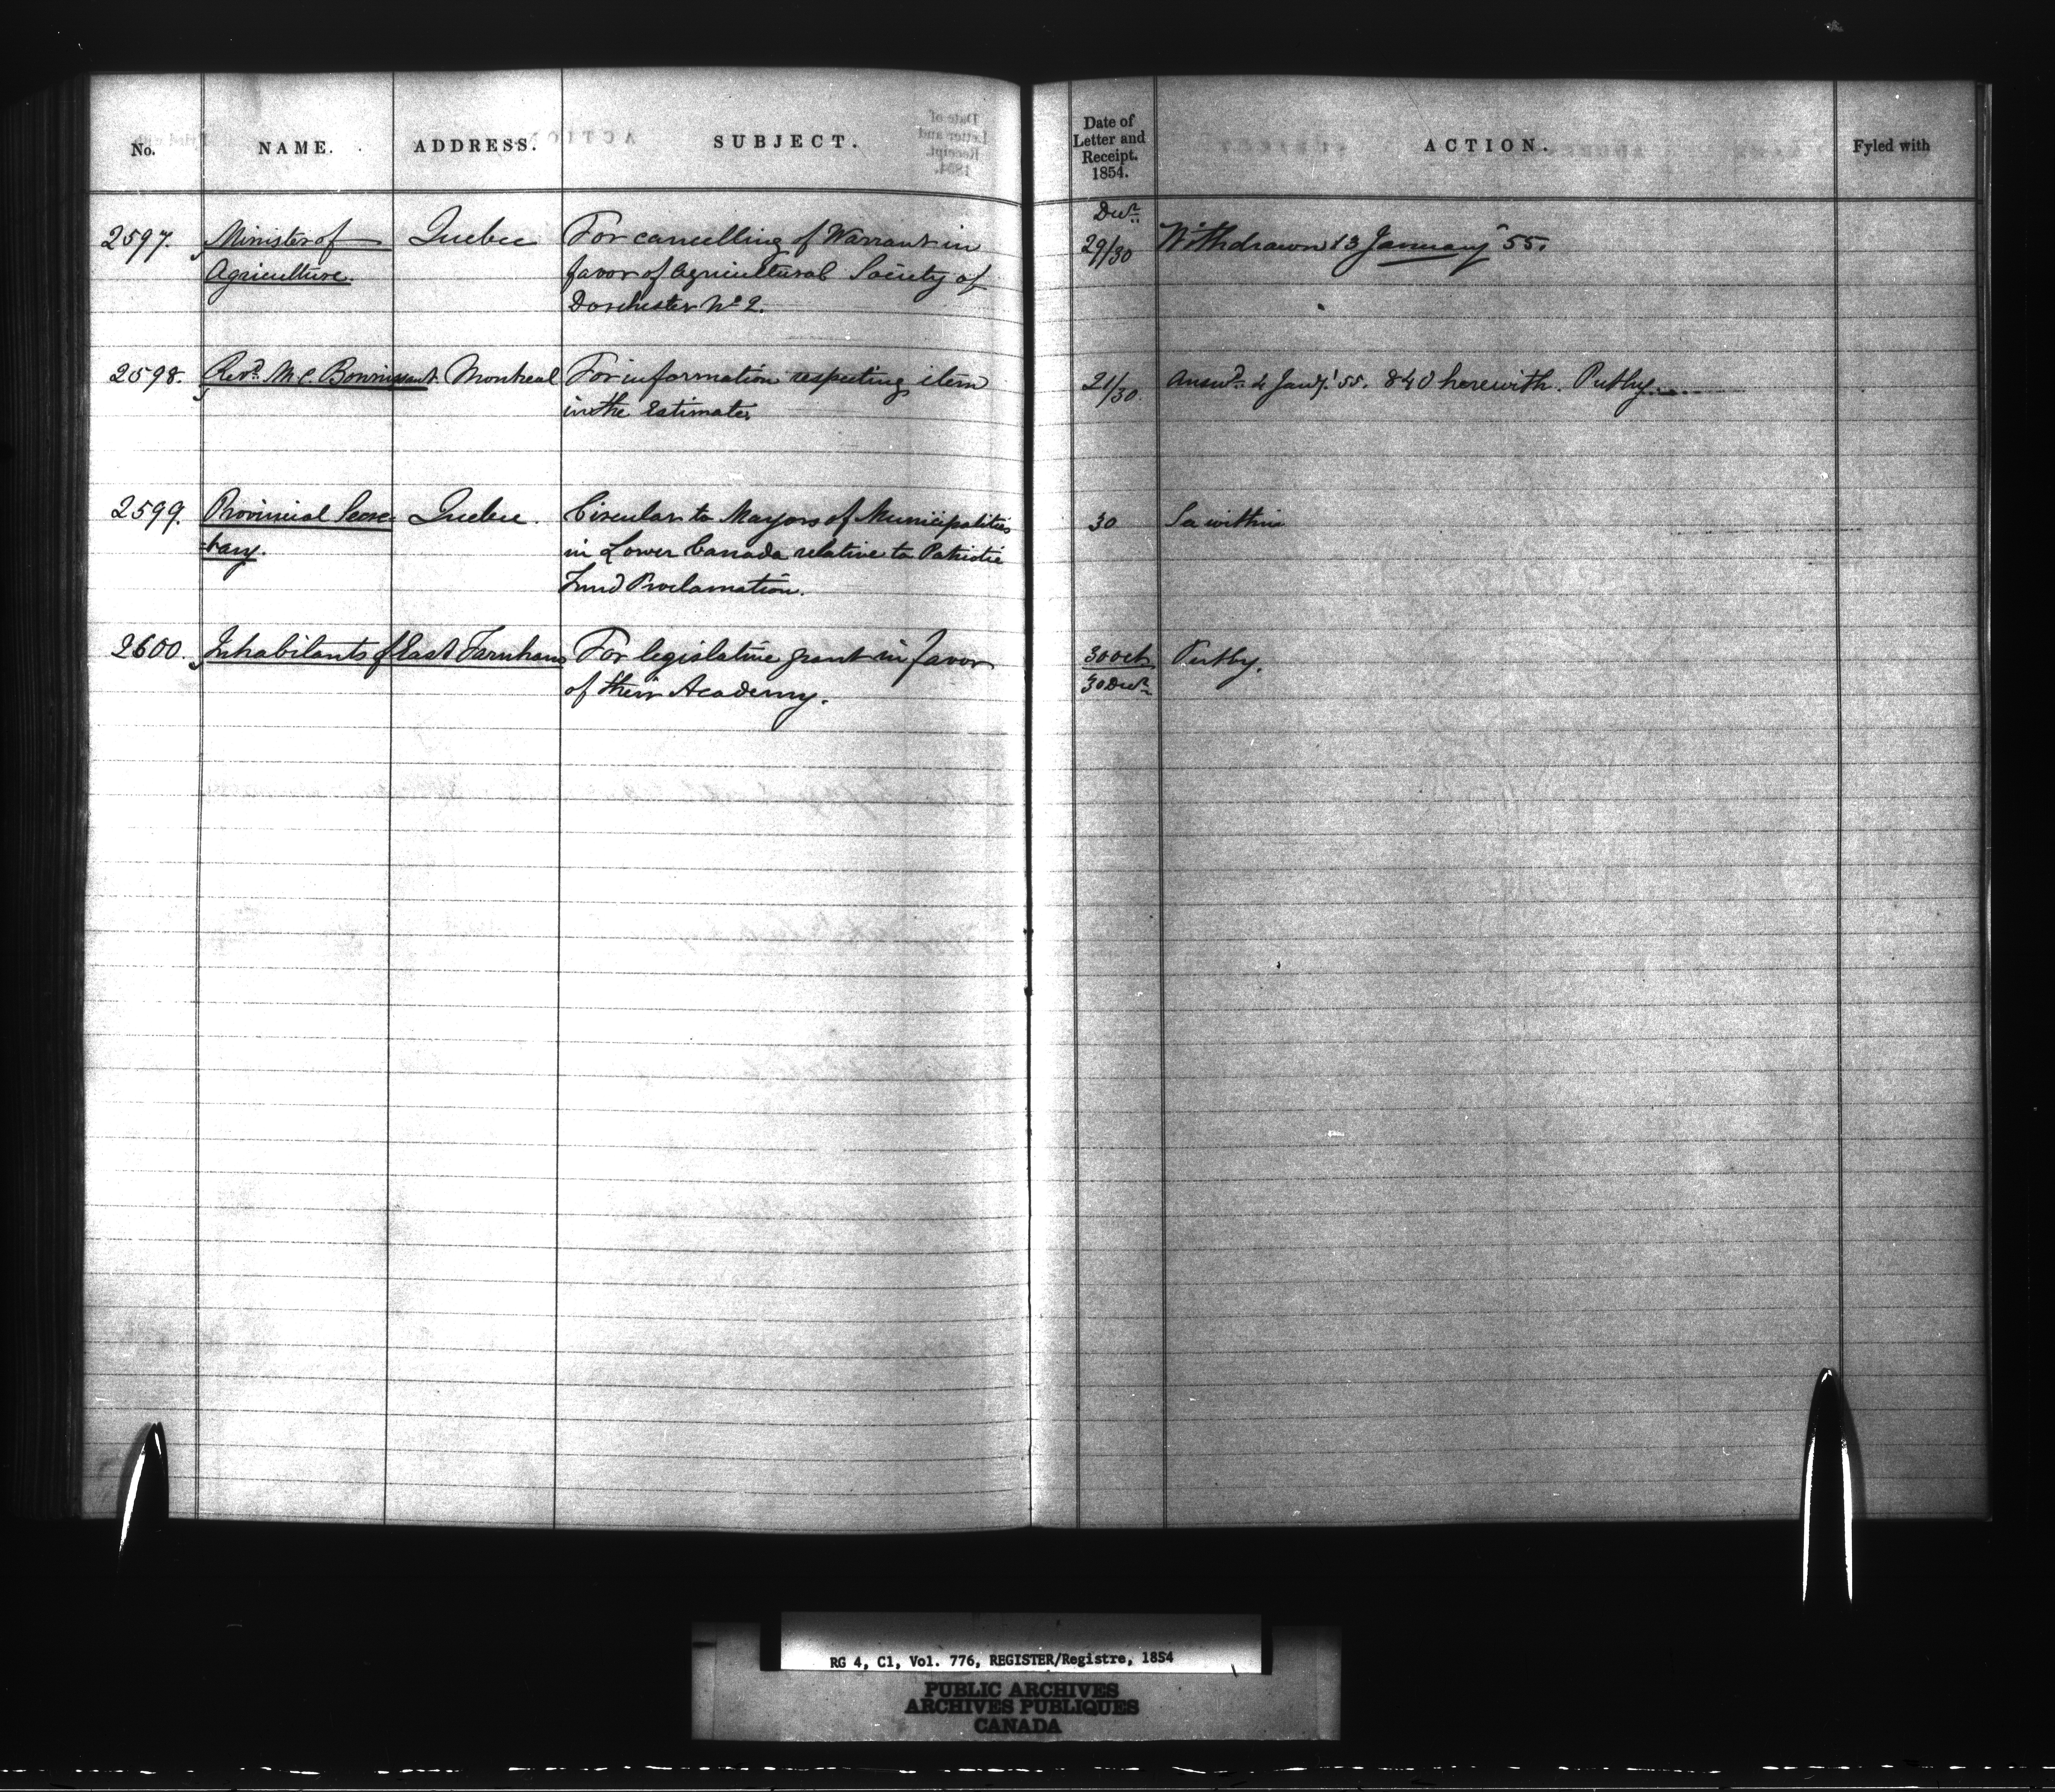 No.
NAME.
ADDRESS.
SUBJECT.
Date of
Letter and
Receipt.
1854.
ACTION.
Fyled with
Decr
2597. Minister of Quebec For cancelling of Warrant in 29/30 Withdrawn 13 January 55.
Agriculture. favor of Agricultural Society of
Dorchester No 2.
2598. Revd Montreal For information respecting item 21/30 Answd 4 Jany 55. 840 herewith. Putby.
in the Estimates
2599. Provincial Secre Quebec. Circular to Mayors of Municipalities 30 So within
-tary. in Lower Canada relative to Patriotic
Fund Proclamation.
2600. Inhabitants of East Farnham For legislative grant in favor 30 Oct Putby.
of their Academy. 30 Decr
RG 4, C1, Vol. 776, REGISTER/Registre, 1854
PUBLIC ARCHIVES
ARCHIVES PUBLIQUES
CANADA